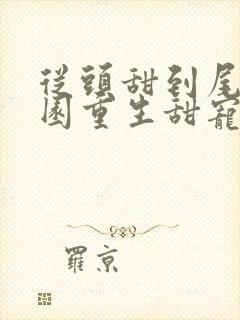 從頭甜到尾
園重生甜寵
羅京